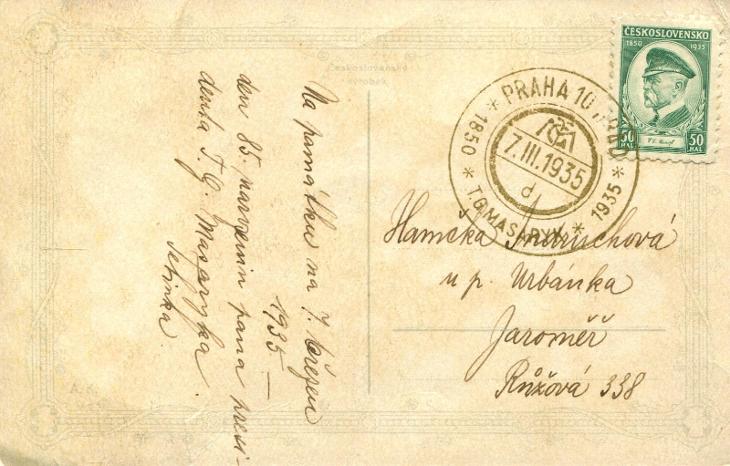 Na památku na 7. březen
1935 –
den 85. narozenin pana presi-
denta T. G. Masaryka
Československý
výrobek
ČESKOSLOVENSKO
1850 1935
50 50
HAL HAL
PRAHA 10
7.III.1935
d
* 1850 * T.G.MASARYK * 1935 *
u p. Urbánka
Jaroměř
Růžová 338